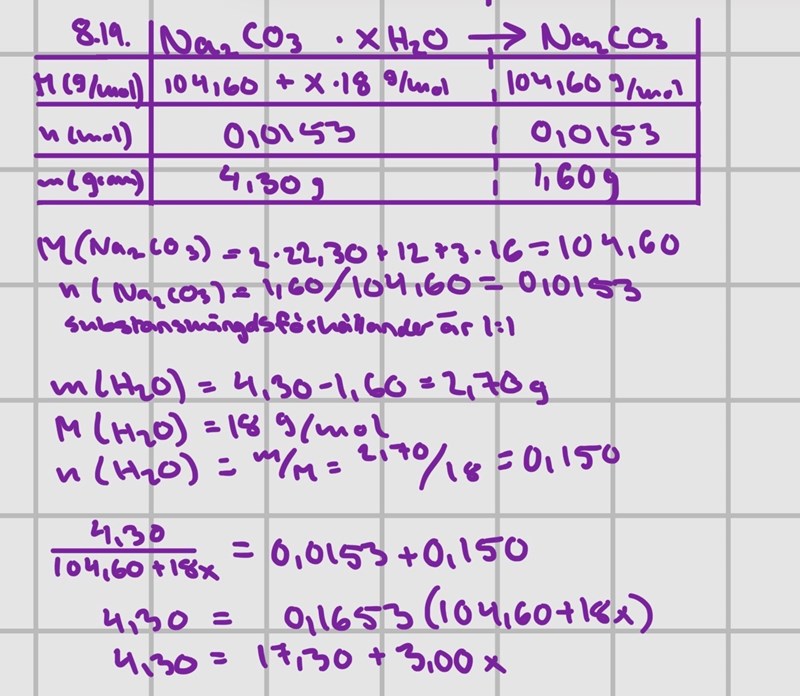 8.19. Na₂CO₃ · xH₂O → Na₂CO₃
M(g/mol) 104,60 + x·18 g/mol 104,60 g/mol
n(mol) 0,0153 0,0153
m(gram) 4,30 g 1,60 g
M(Na₂CO₃) = 2·22,30 + 12 + 3·16 = 104,60
n(Na₂CO₃) = 1,60/104,60 = 0,0153
substansmängdsförhållander är 1:1
m(H₂O) = 4,30-1,60 = 2,70 g
M(H₂O) = 18 g/mol
n(H₂O) = m/M = 2,70/18 = 0,150
4,30/104,60+18x = 0,0153 + 0,150
4,30 = 0,1653(104,60+18x)
4,30 = 17,30 + 3,00x